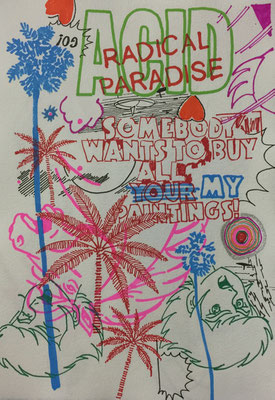 ACID
RADICAL
PARADISE
SOMEBODY
WANTS TO BUY
ALL
YOUR MY
PAINTINGS!